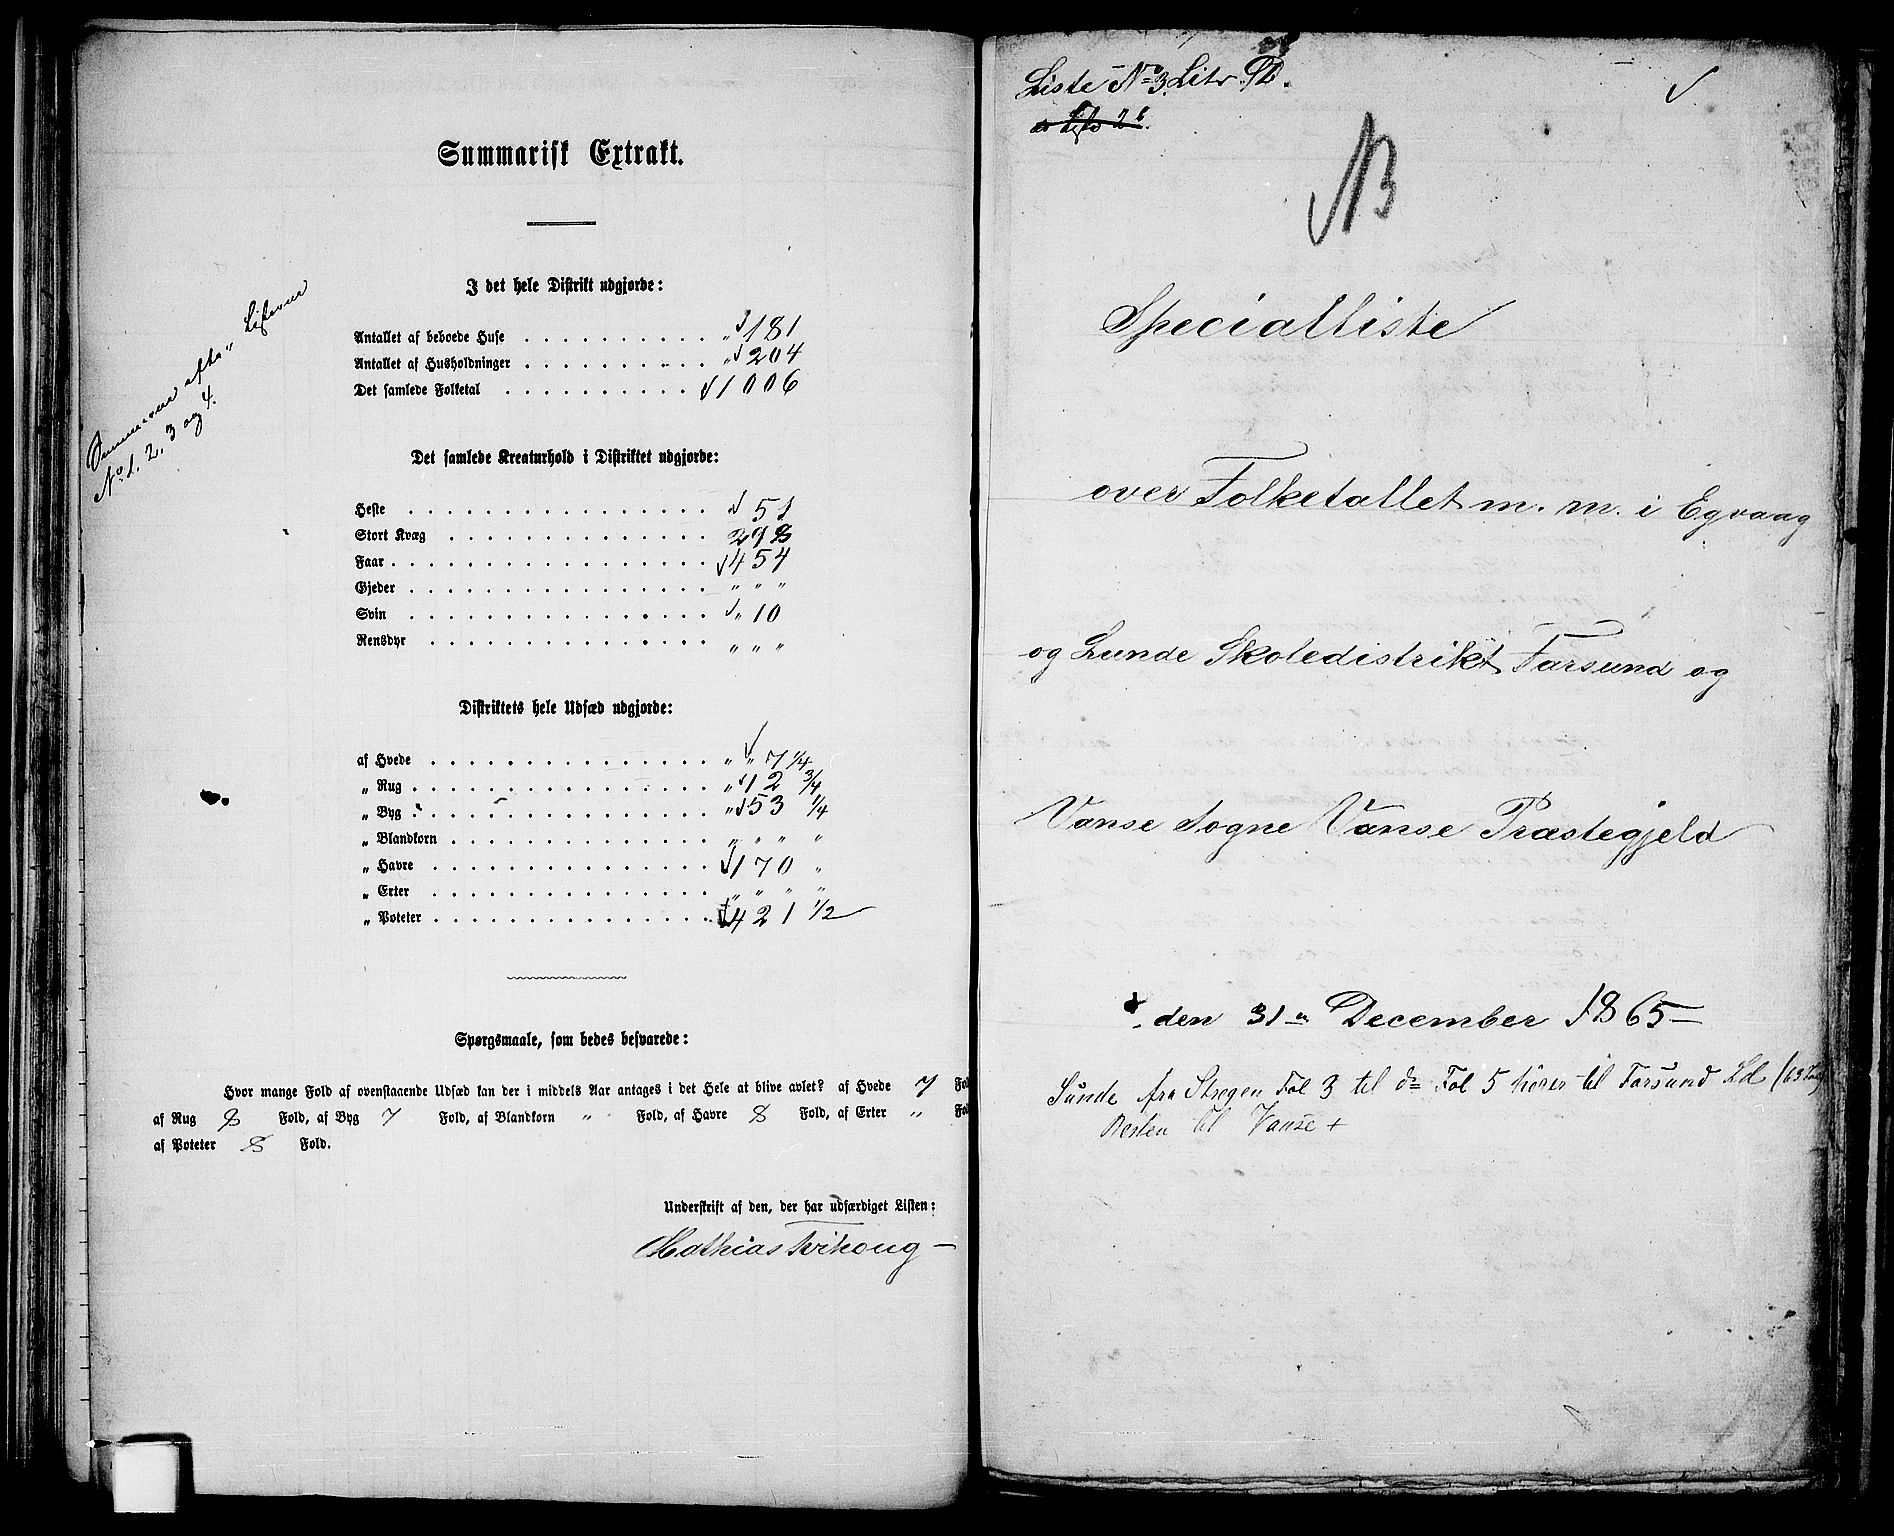 Summarisk Extrakt.
Listerne
No 1. 2. 3 og 4.
I det hele Distrikt udgjorde:
Antallet af beboede Huse . . . . . . . . . . " 181
Antallet af Husholdninger . . . . . . . . . . " 204
Det samlede Folketal . . . . . . . . . . 1006
Det samlede Kreaturhold i Distriktet udgjorde:
Heste . . . . . . . . . . 51
Stort Kvæg . . . . . . . . . . 298
Faar . . . . . . . . . . 454
Gjeder . . . . . . . . . . " " "
Svin . . . . . . . . . . " 10
Rensdyr . . . . . . . . . . " " "
Distriktets hele Udsæd udgjorde:
af Hvede . . . . . . . . . . " " 7 1/4
" Rug . . . . . . . . . . " 12 3/4
" Byg . . . . . . . . . . " 53 1/4
" Blandkorn . . . . . . . . . . " " " "
" Havre . . . . . . . . . . 170 "
" Erter . . . . . . . . . . " " " "
" Poteter . . . . . . . . . . 421 1/2
Spørgsmaale, som bedes besvarede:
Hvor mange Fold af ovenstaaende Udsæd kan der i middels Aar antages i det Hele at blive avlet? af Hvede 7 Fol
af Rug 8 Fold, af Byg 7 Fold, af Blandkorn " Fold, af Havre 8 Fold, af Erter " Fol
af Poteter 8 Fold.
Underskrift af den, der har udfærdiget Listen:
Mathias
Liste No 3. Litr.
NB
Specialliste
over Folketallet m. m. i Egvaag
og Lunde Skoledistrikt Farsund og
Vanse Sogne Vanse Præstegjeld
den 31te December 1865
Sunde fra Stregen Fol 3 til do Fol 5 hører til Farsund Ld
Resten til Vanse +